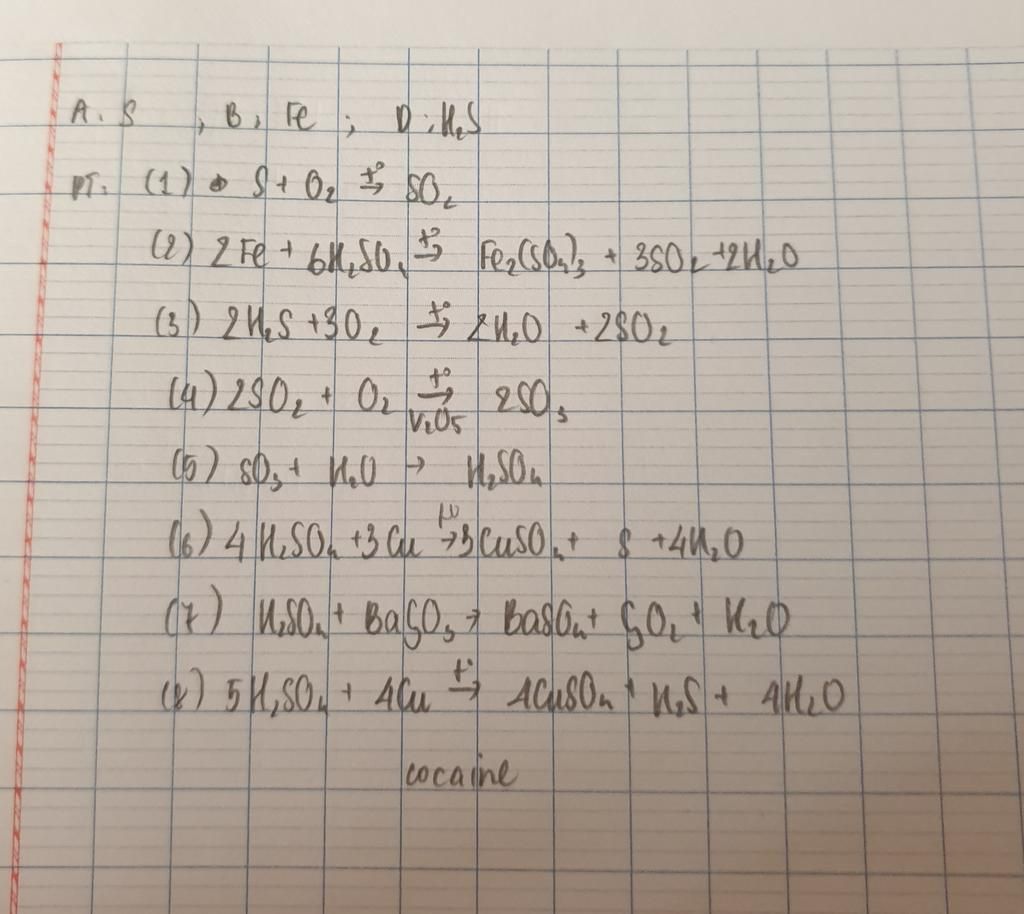 A. S , B, Fe ; D : H₂S
PT: (1) S + O₂ t°→ SO₂
(2) 2Fe + 6H₂SO₄ t°→ Fe₂(SO₄)₃ + 3SO₂ + 2H₂O
(3) 2H₂S + 3O₂ t°→ 2H₂O + 2SO₂
(4) 2SO₂ + O₂ t°→ V₂O₅ 2SO₃
(5) SO₃ + H₂O → H₂SO₄
(6) 4H₂SO₄ + 3Cu → 3CuSO₄ + S + 4H₂O
(7) H₂SO₄ + BaSO₃ → BaSO₄ + SO₂ + H₂O
(8) 5H₂SO₄ + 4Cu t°→ 4CuSO₄ + H₂S + 4H₂O
cocaine